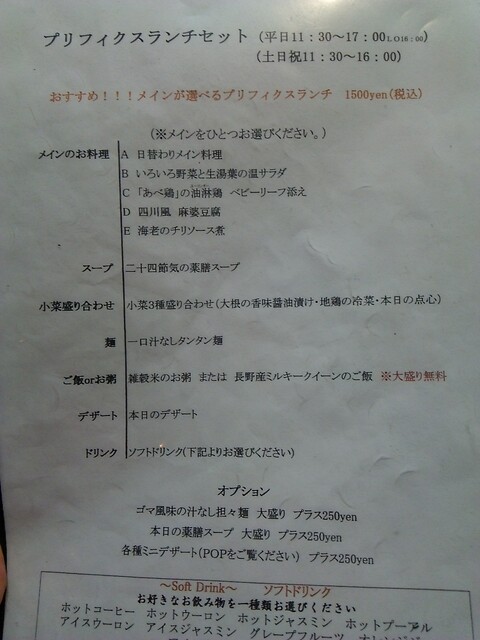 プリフィクスランチセット (平日11：30～17：00 L.O16：00)
(土日祝11：30～16：00)
おすすめ！！！メインが選べるプリフィクスランチ 1500yen(税込)
(※メインをひとつお選びください。)
メインのお料理 A 日替わりメイン料理
B いろいろ野菜と生湯葉の温サラダ
C 「あべ鶏」の油淋鶏 ベビーリーフ添え
D 四川風 麻婆豆腐
E 海老のチリソース煮
スープ 二十四節気の薬膳スープ
小菜盛り合わせ 小菜3種盛り合わせ(大根の香味醤油漬け・地鶏の冷菜・本日の点心)
麺 一口汁なしタンタン麺
ご飯orお粥 雑穀米のお粥 または 長野産ミルキークイーンのご飯 ※大盛り無料
デザート 本日のデザート
ドリンク ソフトドリンク(下記よりお選びください)
オプション
ゴマ風味の汁なし担々麺 大盛り プラス250yen
本日の薬膳スープ 大盛り プラス250yen
各種ミニデザート(POPをご覧ください) プラス250yen
～Soft Drink～ ソフトドリンク
お好きなお飲み物を一種類お選びください
ホットコーヒー ホットウーロン ホットジャスミン ホットプーアル
アイスウーロン アイスジャスミン グレープフルーツ